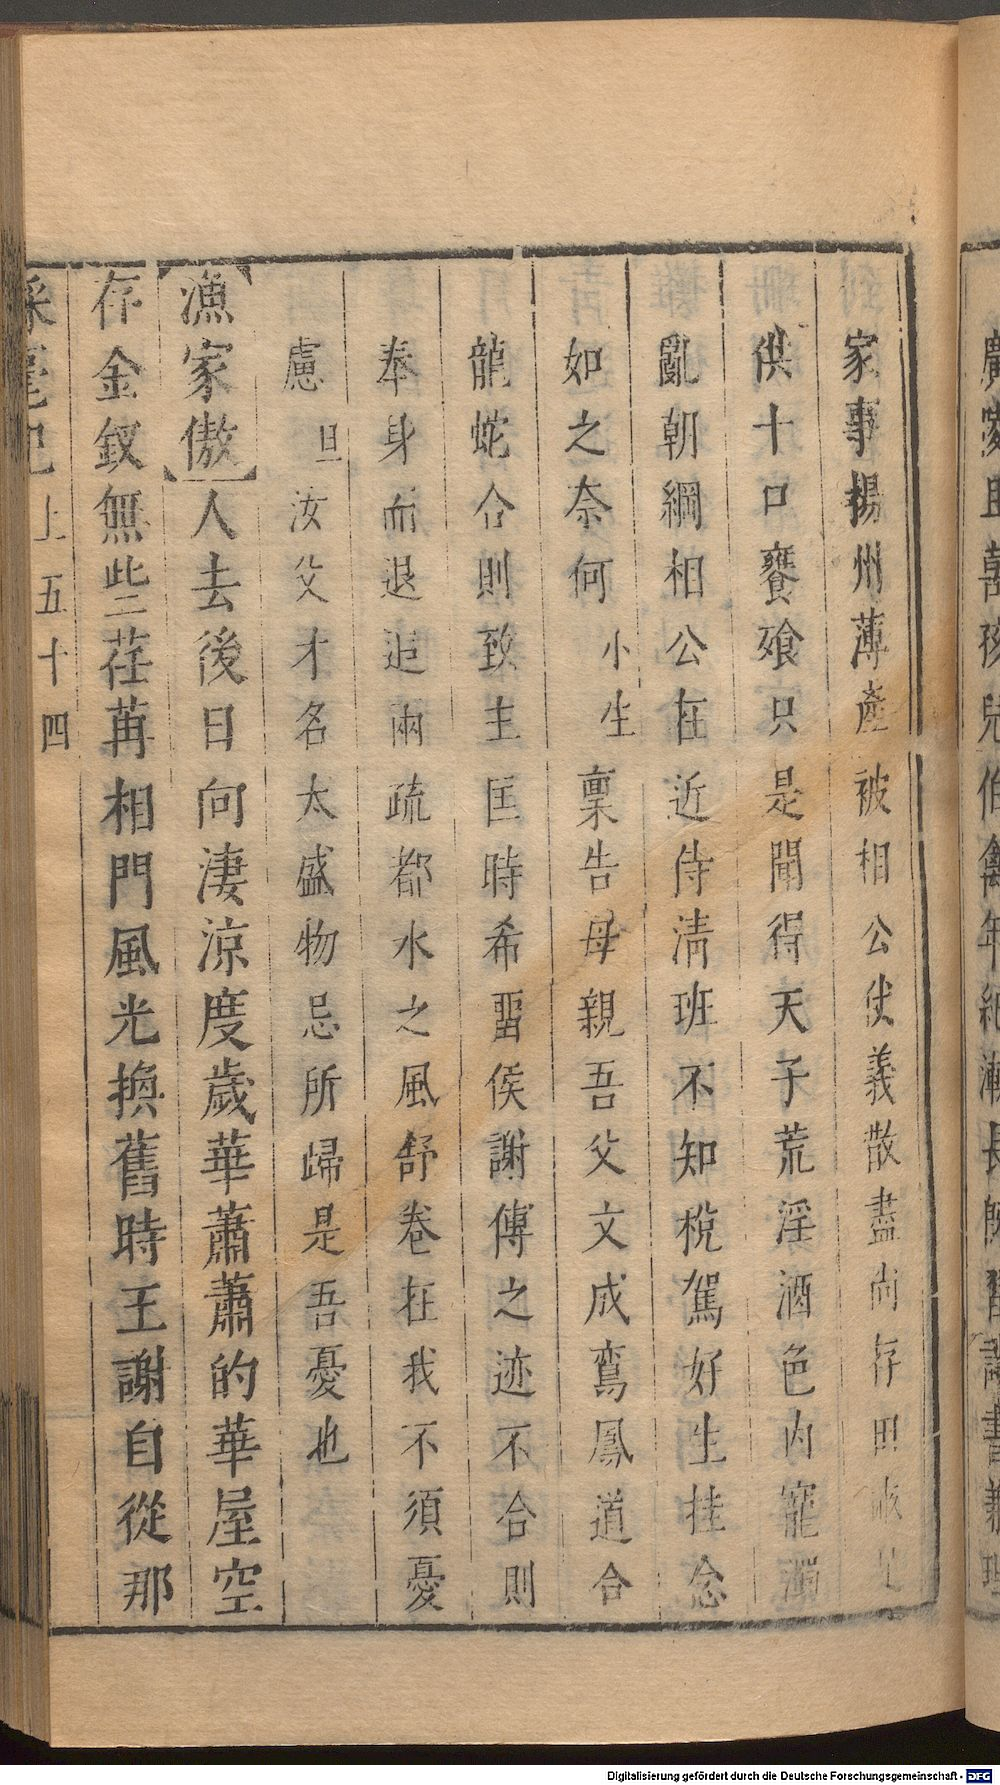 家事揚州薄產被相公使義散盡尚存田
供十口饔飧只是聞得天子荒淫酒色內寵濁
亂朝綱相公在近侍清班不知稅駕好生挂念
如之奈何小生稟告母親吾父文成鸞鳳道合
龍蛇合則致主匡時希留侯謝傅之迹不合則
奉身而退追兩疏都水之風舒卷在我不須憂
慮旦汝父才名太盛物忌所歸是吾憂也
漁家傲人去後日向淒涼度歲華蕭蕭的華屋空
存金釵無些荏苒相門風光換舊時王謝自從那
上五十四
Digitalisierung gefördert durch die Deutsche Forschungsgemeinschaft - DFG